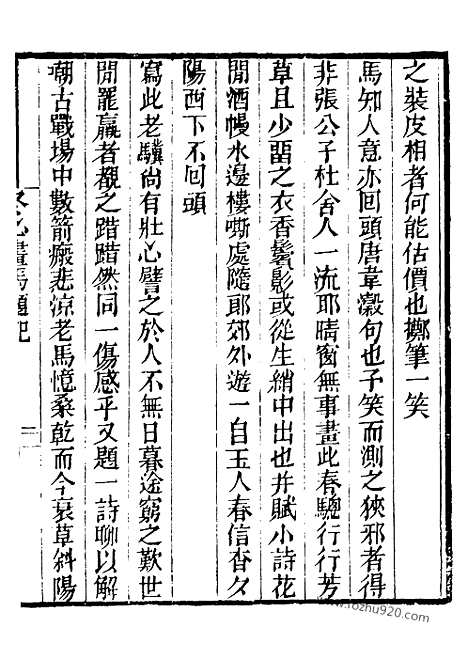 之裝皮相者何能估價也擲筆一笑
馬知人意亦回頭唐韋瀔句也予笑而測之狹邪者得
非張公子杜舍人一流耶晴窗無事畫此春驄行行芳
草且少畱之衣香鬢影或從生綃中出也并賦小詩花
閒酒幔水邊樓嘶處隨郎郊外遊一自玉人春信杳夕
陽西下不回頭
寫此老驥尙有壯心譬之於人不無日暮途窮之歎世
閒罷羸者覩之踖踖然同一傷感乎又題一詩聊以解
嘲古戰場中數箭瘢悲涼老馬憶桑乾而今衰草斜陽
冬心畫馬題記
二
www.fozhu920.com